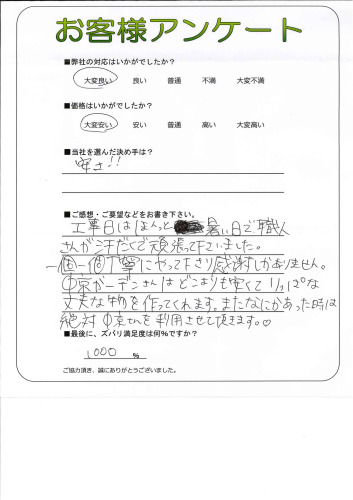 お客様アンケート
■弊社の対応はいかがでしたか?
大変良い 良い 普通 不満 大変不満
■価格はいかがでしたか?
大変安い 安い 普通 高い 大変高い
■当社を選んだ決め手は?
安さ!!
■ご感想・ご要望などをお書き下さい。
工事日はほんと 暑い日で、職人
さんが汗だくで頑張って下さいました。
一個一個丁寧にやって下さり感謝しかありません。
中京ガーデンさんはどこよりも安くて
丈夫な物を作ってくれます。またなにかあった時は
絶対中京さんを利用させて頂きます。♡
■最後に、ズバリ満足度は何%ですか?
1000 %
ご協力頂き、誠にありがとうございました。